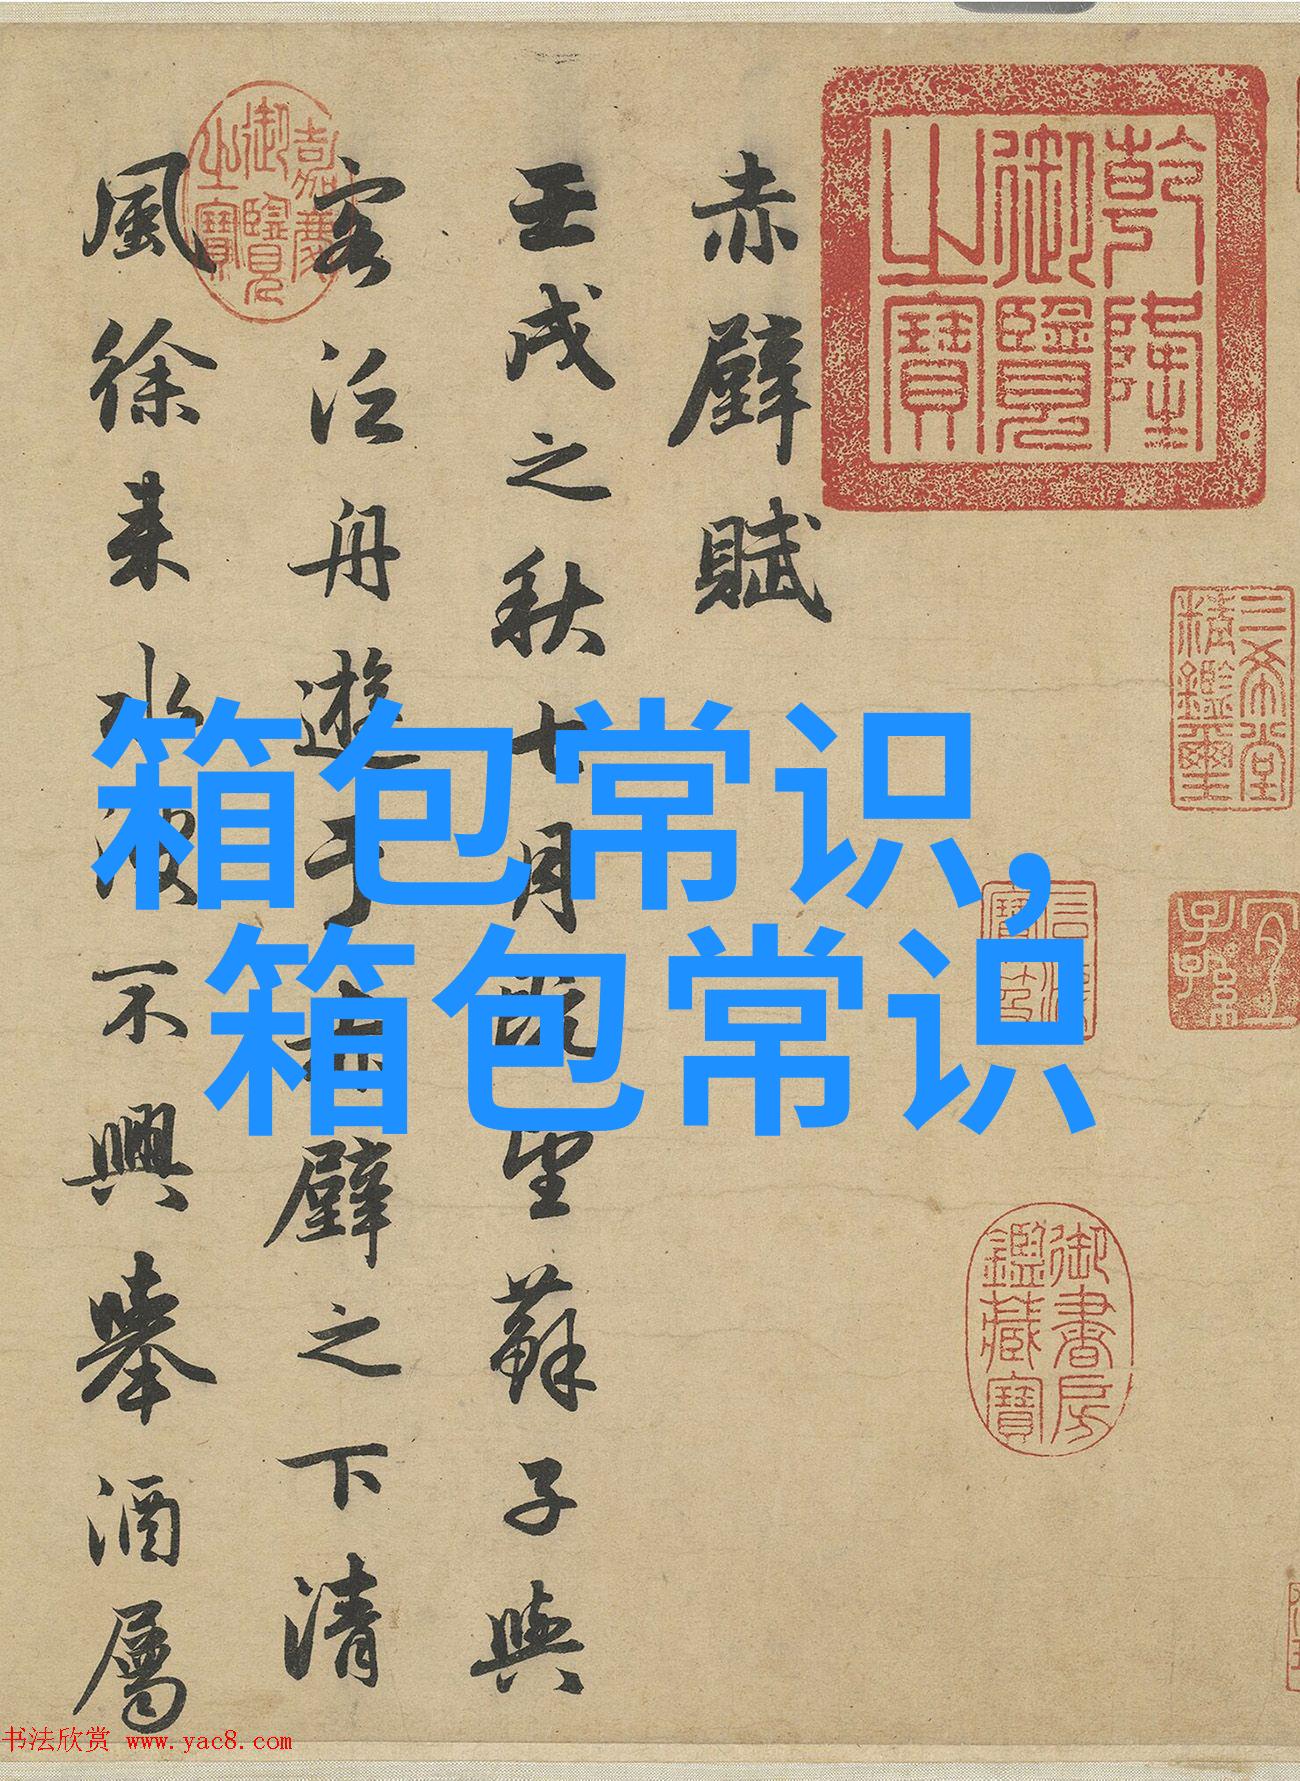 赤壁賦
壬戌之秋七月既望蘇子與
客泛舟遊于赤壁之下清
風徐来水波不興舉酒屬
乾隆御覽之寶
嘉慶御覽之寶
三希堂精鑑璽
宜子孫
御書房鑑藏寶
箱包常识,
箱包常识
书法欣赏 www.yac8.com